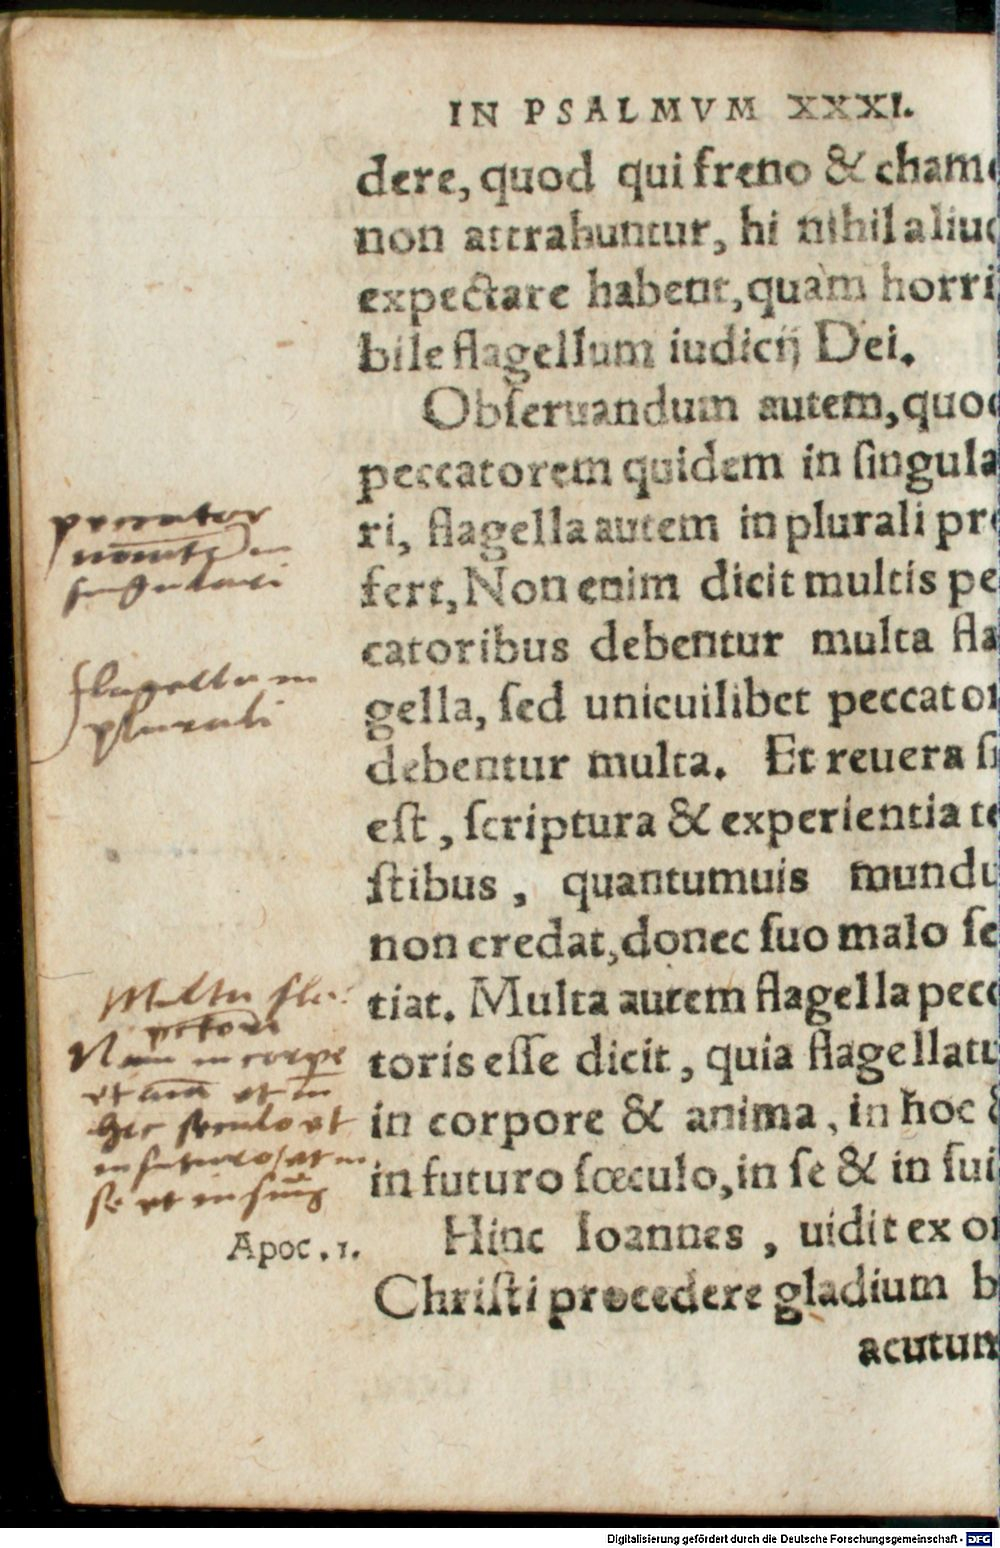 IN PSALMVM XXXI.
dere, quod qui freno & cham
non attrahuntur, hi nihil aliud
expectare habent, quàm horri
bile flagellum iudicij Dei.
Obſeruandum autem, quod
peccatorem quidem in ſingula
ri, flagella autem in plurali pro
fert, Non enim dicit multis pec
catoribus debentur multa fla
gella, ſed unicuilibet peccatori
debentur multa. Et reuera ſi
eſt, ſcriptura & experientia te
ſtibus, quantumuis mundu
non credat, donec ſuo malo ſe
tiat. Multa autem flagella pecc
toris eſſe dicit, quia flagellatu
in corpore & anima, in hoc &
in futuro ſœculo, in ſe & in ſui
Hinc Ioannes, uidit ex or
Chriſti procedere gladium b
acutum
peccator
in
ſingulari
flagella in
plurali
Multa fla
Nam in corpe
et aīa et in
hoc ſeculo et
in futuro, et in
ſe et in ſuis
Apoc. 1.
Digitalisierung gefördert durch die Deutsche Forschungsgemeinschaft - DFG